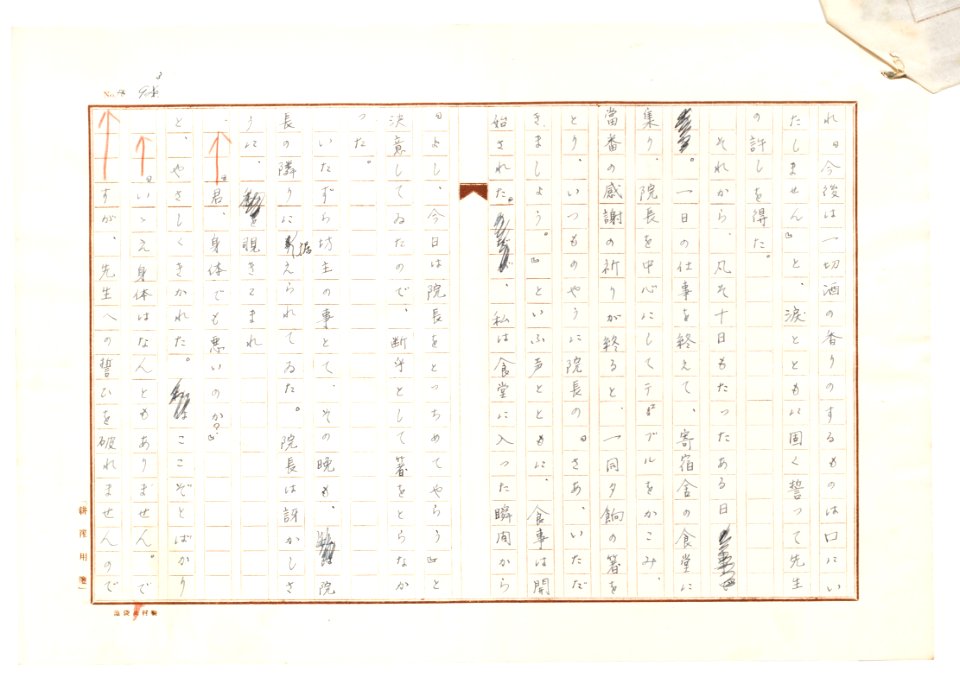 れ『今後は一切酒の香りのするものは口にい
たしません』と、涙とともに固く誓って先生
の許しを得た。
それから、凡そ十日もたったある日
。一日の仕事を終えて、寄宿舎の食堂に
集り、院長を中心にしてテーブルをかこみ、
當番の感謝の祈りが終ると、一同夕餉の箸を
とり、いつものやうに院長の『さあ、いただ
きましよう。』といふ声とともに、食事は開
始された。、私は食堂に入った瞬間から
『よし、今日は院長をとっちめてやらう』と
決意してゐたので、断乎として箸をとらなか
った。
いたずら坊主の事とて、その晩も、院
長の隣りに据えられてゐた。院長は訝かしさ
うに、を覗きこまれ
『君、身体でも悪いのか？』
と、やさしくきかれた。はここぞとばかり
『いゝえ身体はなんともありません。で
すが、先生への誓ひを破れませんので